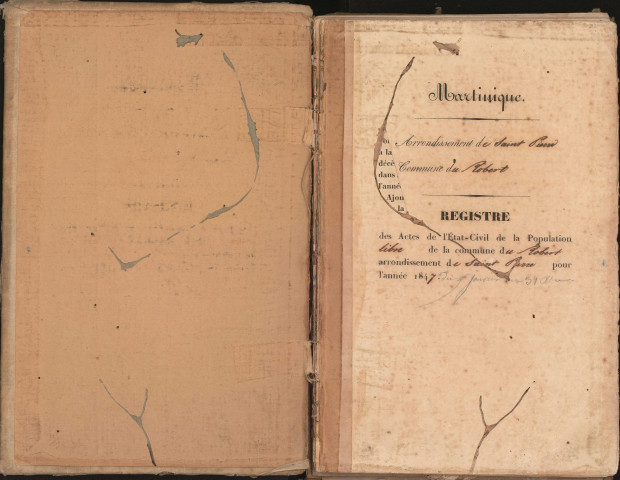 Martinique.
Arrondissement de Saint Pierre
à la
décè
Commune du Robert
dans
l'anné
Ajou
la
REGISTRE
des Actes de l'État-Civil de la Population
libre de la commune du Robert
arrondissement de Saint Pierre pour
l'année 1847